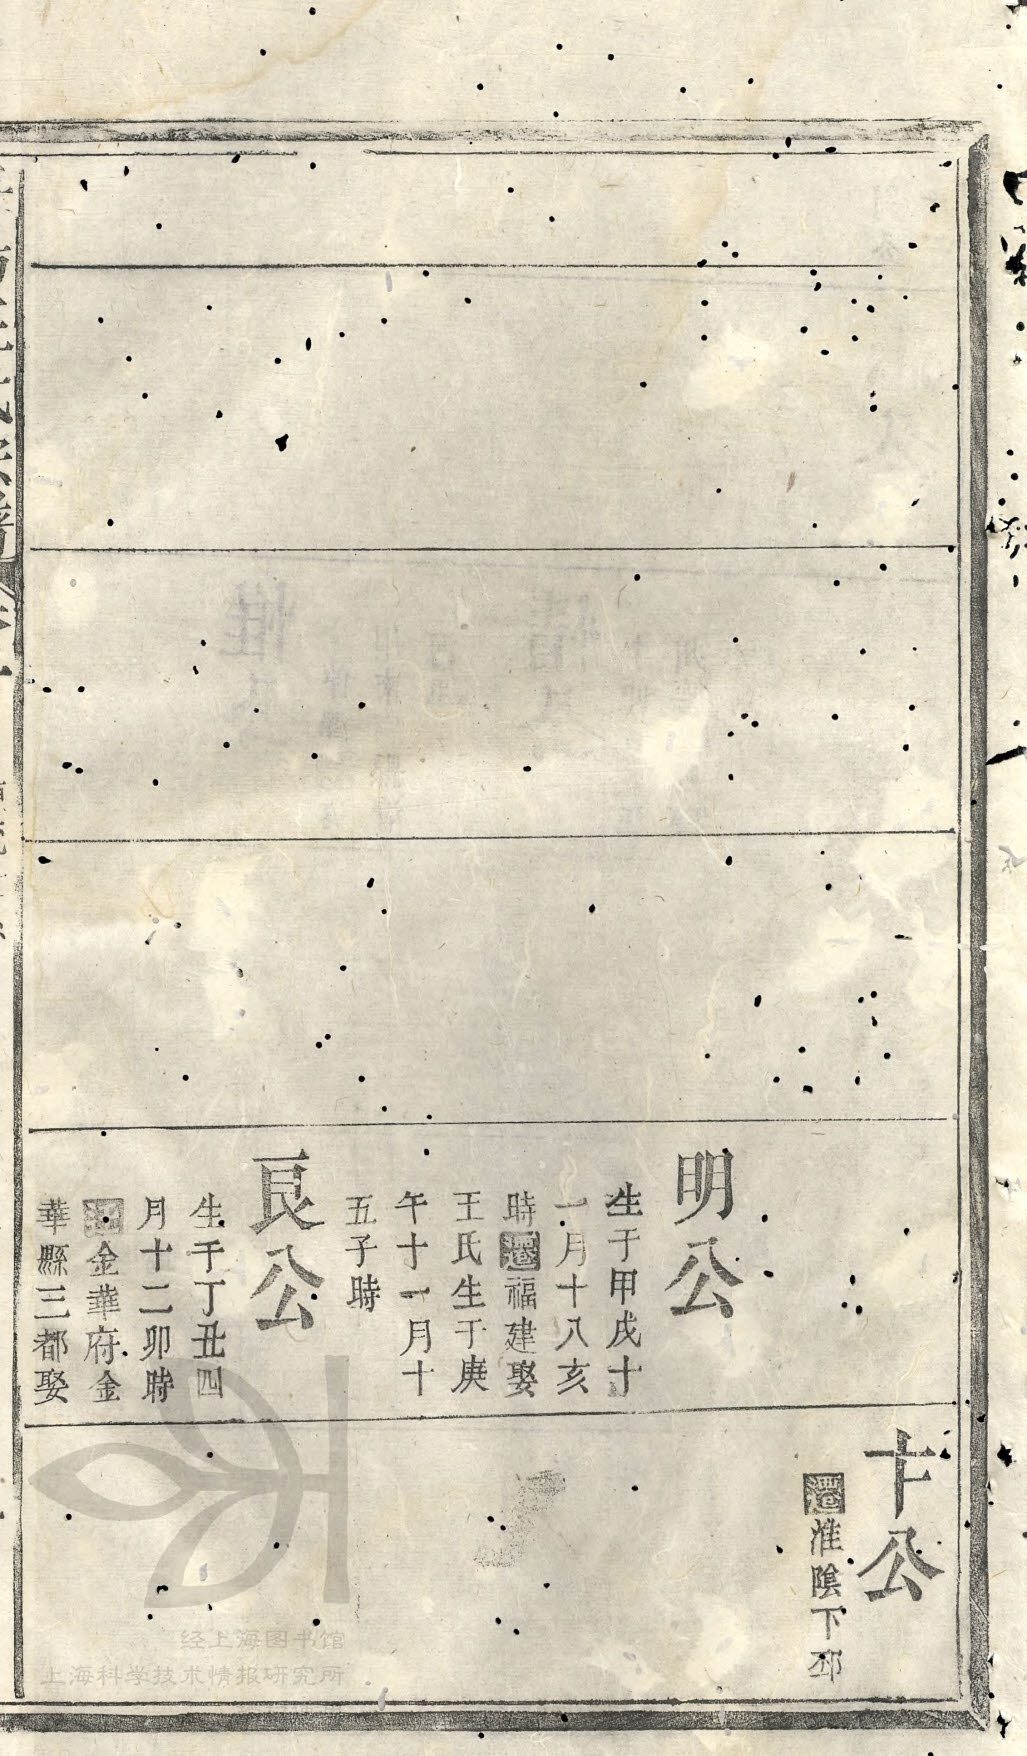 明公
生于甲戌十
一月十八亥
時遷福建娶
王氏生于庚
午十一月十
五子時
良公
生于丁丑四
月十二卯時
金華府金
華縣三都娶
卞公
遷淮陰下邳
经上海图书馆
上海科学技术情报研究所